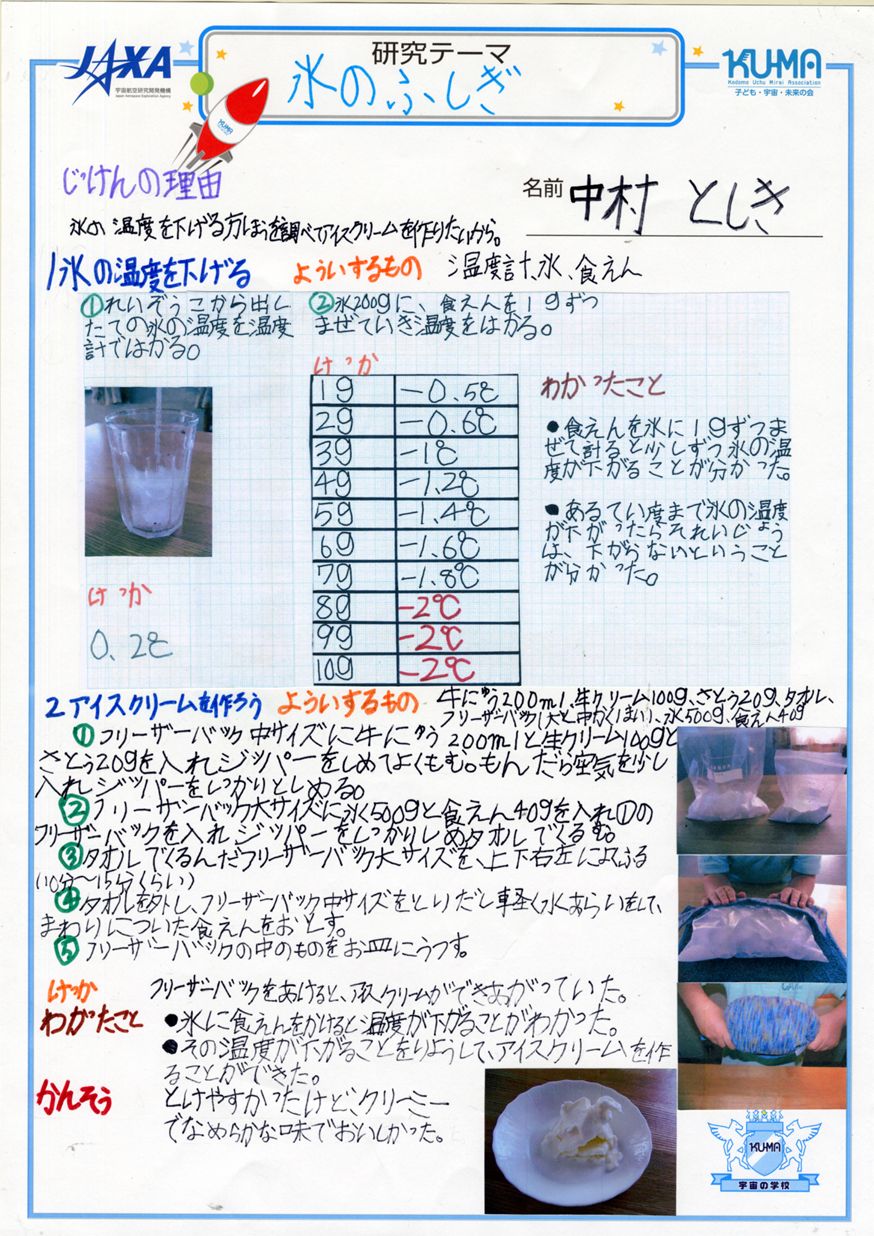 JAXA
宇宙航空研究開発機構
Japan Aerospace Exploration Agency
研究テーマ
氷のふしぎ
KU-MA
Kodomo Uchu Mirai Association
子ども・宇宙・未来の会
KU-MA
じっけんの理由
名前 中村 としき
氷の温度を下げる方ほうを調べアイスクリームを作りたいから。
1氷の温度を下げる ようい するもの 温度計、氷、食えん
①れいぞうこから出し
たての氷の温度を温度
計ではかる。
②氷200gに、食えんを1gずつ
まぜていき温度をはかる。
けっか
1g -0.5℃
2g -0.6℃
3g -1℃
4g -1.2℃
5g -1.4℃
6g -1.6℃
7g -1.8℃
8g -2℃
9g -2℃
10g -2℃
わかったこと
●食えんを氷に1gずつま
ぜて計ると少しずつ氷の温
度が下がることが分かった。
●あるてい度まで氷の温度
が下がったらそれいじょう
は、下がらないということ
が分かった。
けっか
0.2℃
2アイスクリームを作ろう よういするもの 牛にゅう200ml、生クリーム100g、さとう20g、タオル、
フリーザーバック(大と中かく1まい)、氷500g、食えん40g
①フリーザーバック中サイズに牛にゅう200mlと生クリーム100gと
さとう20gを入れジッパーをしめてよくもむ。もんだら空気を少し
入れジッパーをしっかりとしめる。
②フリーザーバック大サイズに氷500gと食えん40gを入れ①の
フリーザーバックを入れジッパーをしっかりしめタオルでくるむ。
③タオルでくるんだフリーザーバック大サイズを、上下右左によくふる
(10分～15分くらい)
④タオルを外し、フリーザーバック中サイズをとりだし軽く水あらいをして、
まわりについた食えんをおとす。
⑤フリーザーバックの中のものをお皿にうつす。
けっか フリーザーバックをあけると、アイスクリームができあがっていた。
わかったこと ●氷に食えんをかけると温度が下がることがわかった。
●その温度が下がることをりようして、アイスクリームを作
ることができた。
かんそう とけやすかったけど、クリーミー
でなめらかな味でおいしかった。
KU-MA
宇宙の学校